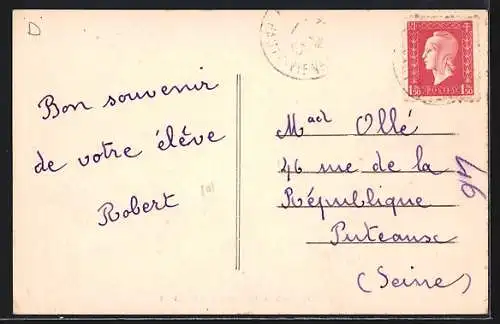 D
Bon souvenir
de votre élève
Robert
POSTES
Mad Ollé
46 rue de la
République
Puteaux
(Seine)